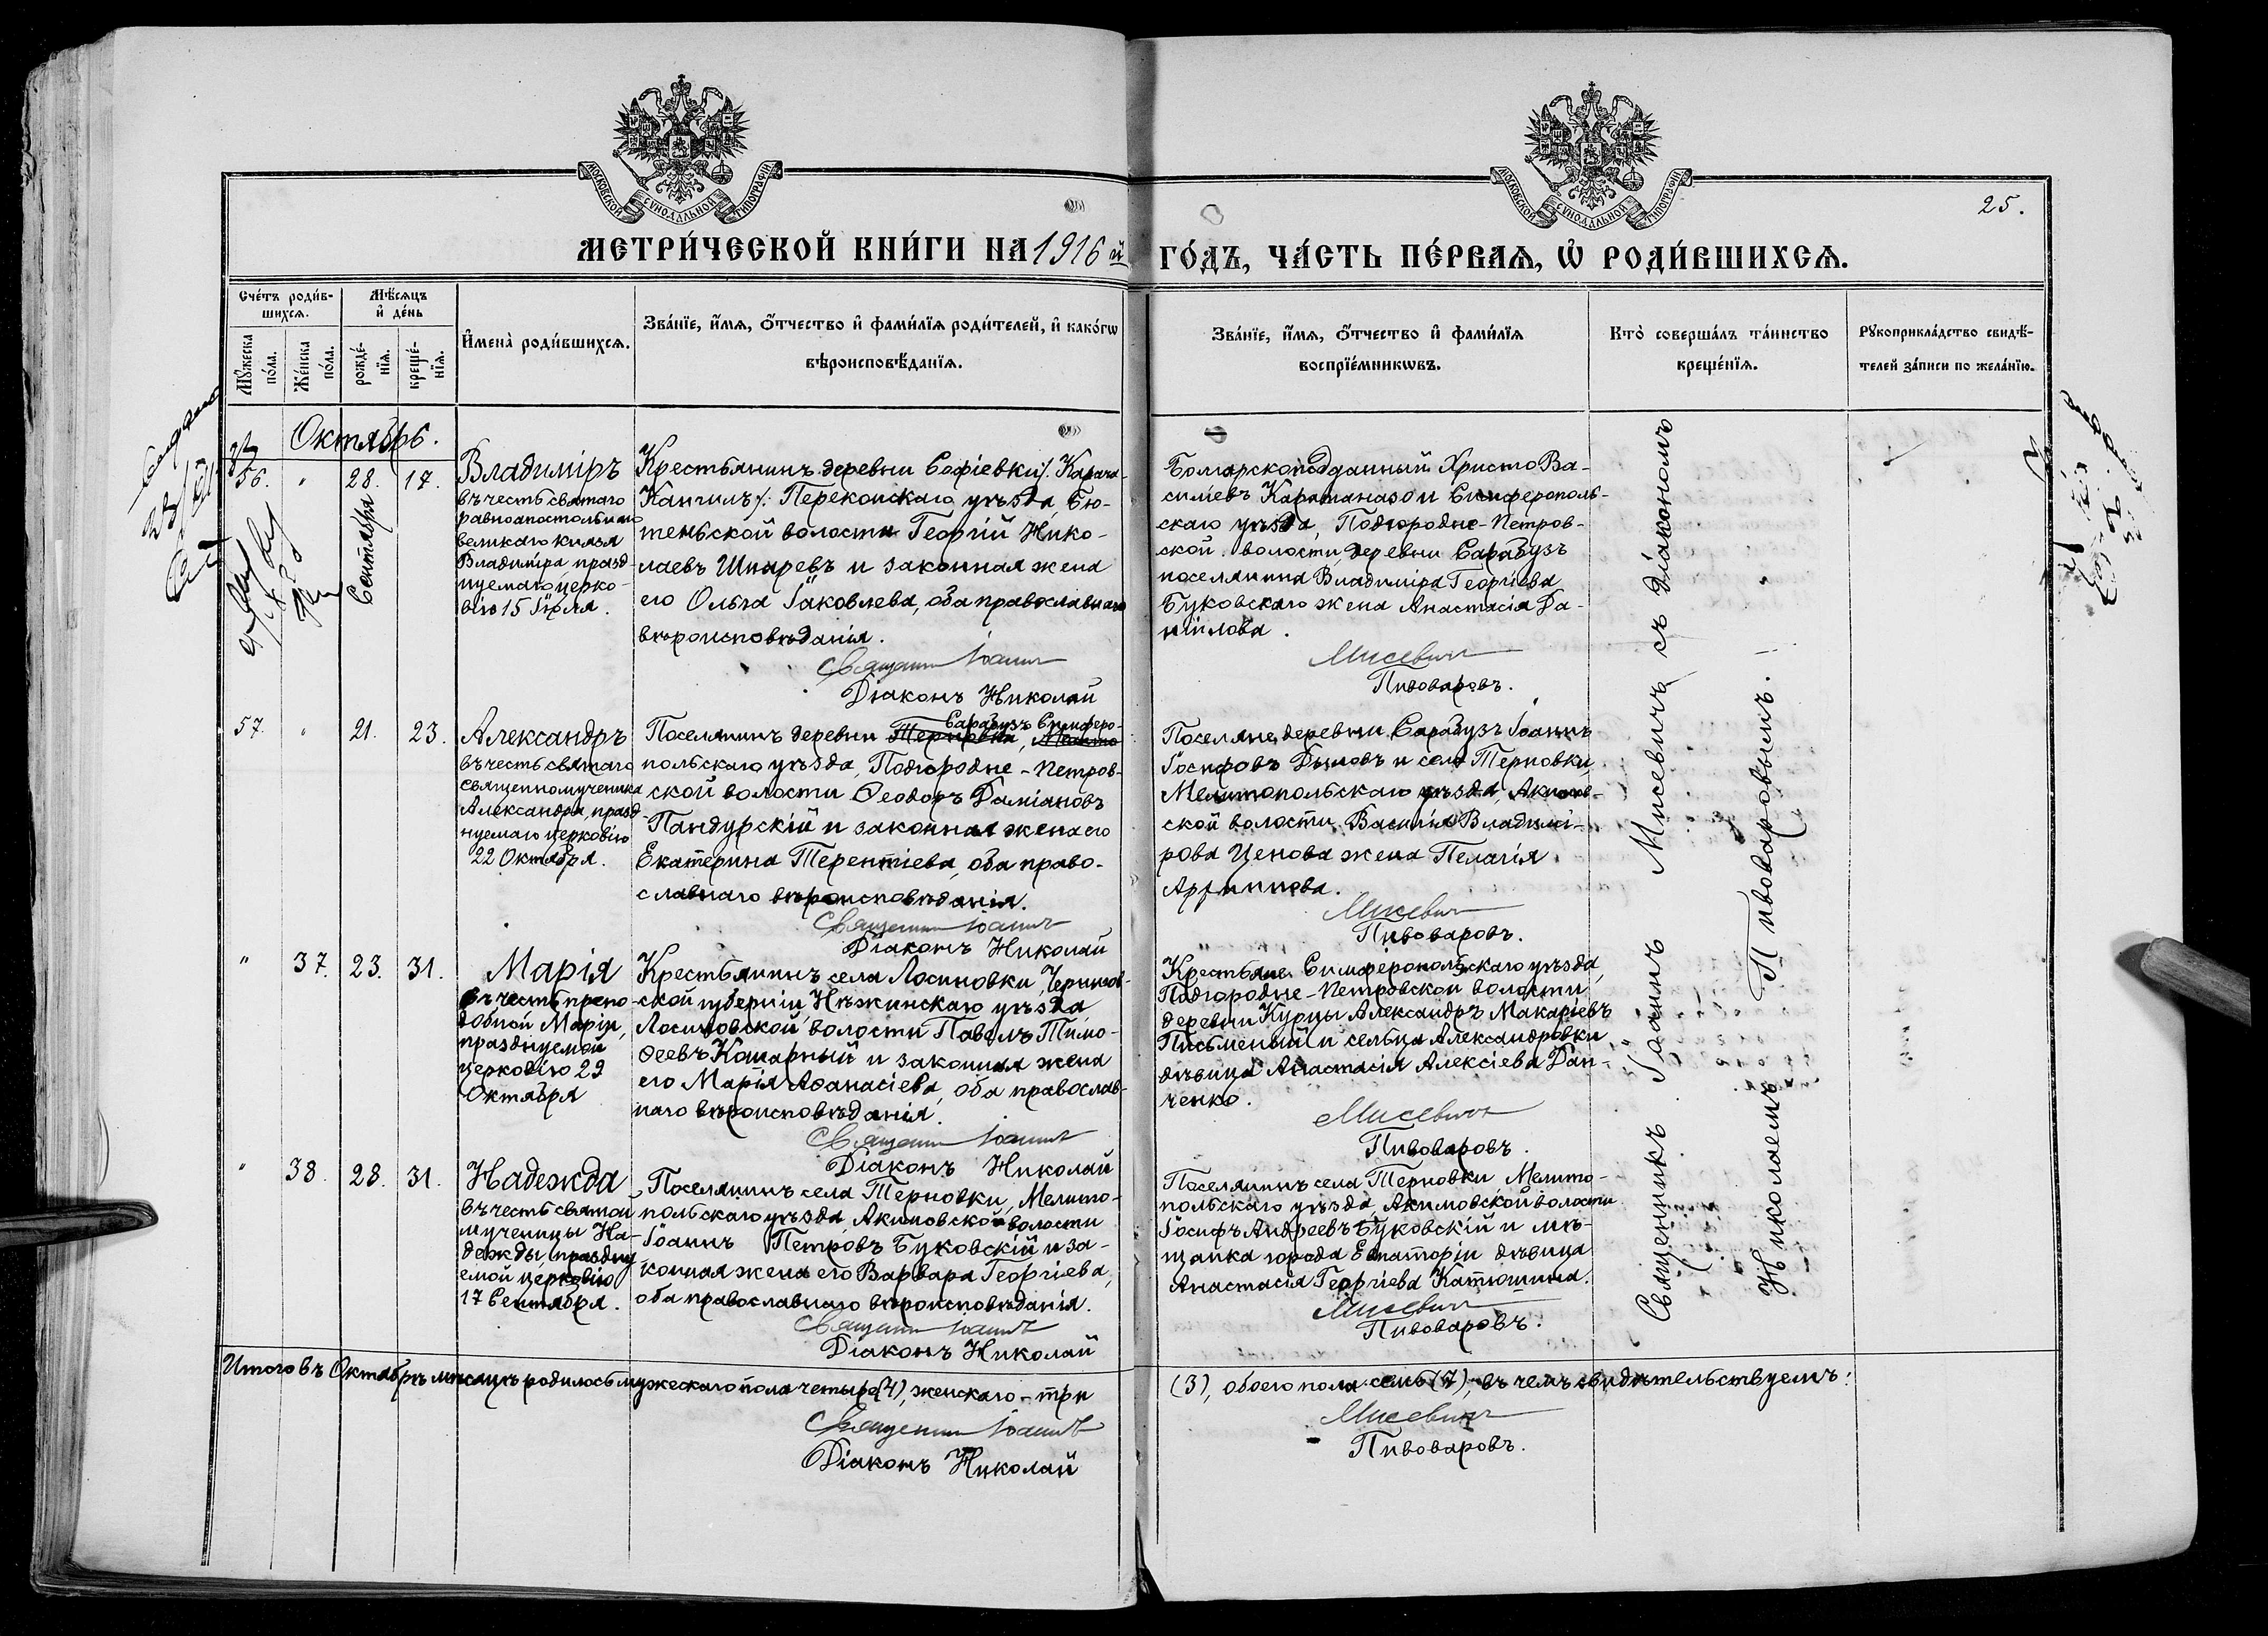 МОСКОВСКОЙ СѴНОДАЛЬНОЙ ТИПОГРАФІИ
МОСКОВСКОЙ СѴНОДАЛЬНОЙ ТИПОГРАФІИ
25.
МЕТРИ́ЧЕСКОЙ КНИ́ГИ НА 1916 й ГО́ДЪ, ЧА́СТЬ ПЕ́РВАѦ, Ѡ҆ РОДИ́ВШИХСѦ.
Сче́тъ роди́в-
шихсѧ.
Мꙋ́жеска
по́ла.
Же́нска
по́ла.
Мѣ́сѧцъ
и҆ де́нь
рожде́-
нїѧ.
креще́-
нїѧ.
И҆мена̀ роди́вшихсѧ.
Зва́нїе, и҆́мѧ, ѻ҆́тчество и҆ фами́лїѧ роди́телей, и҆ како́гѡ
вѣроисповѣ́данїѧ.
Зва́нїе, и҆́мѧ, ѻ҆́тчество и҆ фами́лїѧ
воспрїе́мникѡвъ.
Кто̀ соверша́лъ та́инство
креще́нїѧ.
Рꙋкоприкла́дство свидѣ́-
телей за́писи по жела́нїю.
Октябрь.
56. " 28. 17.
Сентября
Владиміръ
въ честь святаго
равноапостольнаго
великаго князя
Владиміра празд-
нуемаго церко-
вію 15 Іюля.
Крестьянинъ деревни Софіевки /: Карача-
Кангилъ :/ Перекопскаго уѣзда, Бю-
теньской волости Георгій Нико-
лаевъ Шпаревъ и законная жена
его Ольга Іаковлева, оба православнаго
вѣроисповѣданія.
Священникъ Іоаннъ
Діаконъ Николай
Болгарскоподданный Христо Ва-
силіевъ Караманазо и Симферополь-
скаго уѣзда, Подгородне-Петров-
ской волости, деревни Сарабузъ
поселянина Владиміра Георгіева
Буковскаго жена Анастасія Да-
ніилова.
Мисевичъ
Пивоваровъ.
57. " 21. 23.
Александръ
въ честь святаго
священномученика
Александра, празд-
нуемаго церковію
22 Октября.
Сарабузъ Симферо-
Поселянинъ деревни Терновка, Мелито-
польскаго уѣзда, Подгородне-Петров-
ской волости Ѳеодоръ Даміановъ
Пандурскій и законная жена его
Екатерина Терентіева, оба право-
славнаго вѣроисповѣданія.
Священникъ Іоаннъ
Діаконъ Николай
Поселяне, деревни Сарабузъ Іоаннъ
Іосифовъ Дымовъ и села Терновки,
Мелитопольскаго уѣзда, Акимов-
ской волости Василія Владимі-
рова Ценова жена Пелагія
Мисевичъ
Пивоваровъ.
" 37. 23. 31.
Марія
въ честь препо-
добной Маріи,
празднуемой
церковію 29
Октября
Крестьянинъ села Лосиновки, Чернигов-
ской губерніи, Нѣжинскаго уѣзда
Лосиновской волости Павелъ Тимо-
ѳеевъ Комарный и законная жена
его Марія Аѳанасіева, оба православ-
наго вѣроисповѣданія.
Священникъ Іоаннъ
Діаконъ Николай
Крестьяне Симферопольскаго уѣзда,
Подгородне-Петровской волости
деревни Курцы Александръ Макаріевъ
Письменный и сельца Александровки
дѣвица Анастасія Алексіева Дан-
ченко.
Мисевичъ
Пивоваровъ.
" 38. 28. 31.
Надежда
въ честь святой
мученицы На-
дежды, праздну
емой церковію
17 Сентября.
Поселянинъ села Терновки, Мелито-
польскаго уѣзда, Акимовской волости
Іоаннъ Петровъ Буковскій и за-
конная жена его Варвара Георгіева,
оба православнаго вѣроисповѣданія.
Священникъ Іоаннъ
Діаконъ Николай
Поселянинъ села Терновки Мелито-
польскаго уѣзда, Акимовской волости
Іосифъ Андреевъ Буковскій и мѣ-
щанка города Евпаторіи дѣвица
Анастасія Георгіева Катюшина.
Мисевичъ
Пивоваровъ.
Священникъ Іоаннъ Мисевичъ съ діакономъ
Николаемъ Пивоваровымъ.
Итого въ Октябрѣ мѣсяцѣ родилось мужескаго пола четыре (4), женскаго - три (3), обоего пола семь (7), въ чемъ свидѣтельствуемъ:
Священникъ Іоаннъ Мисевичъ
Діаконъ Николай Пивоваровъ.